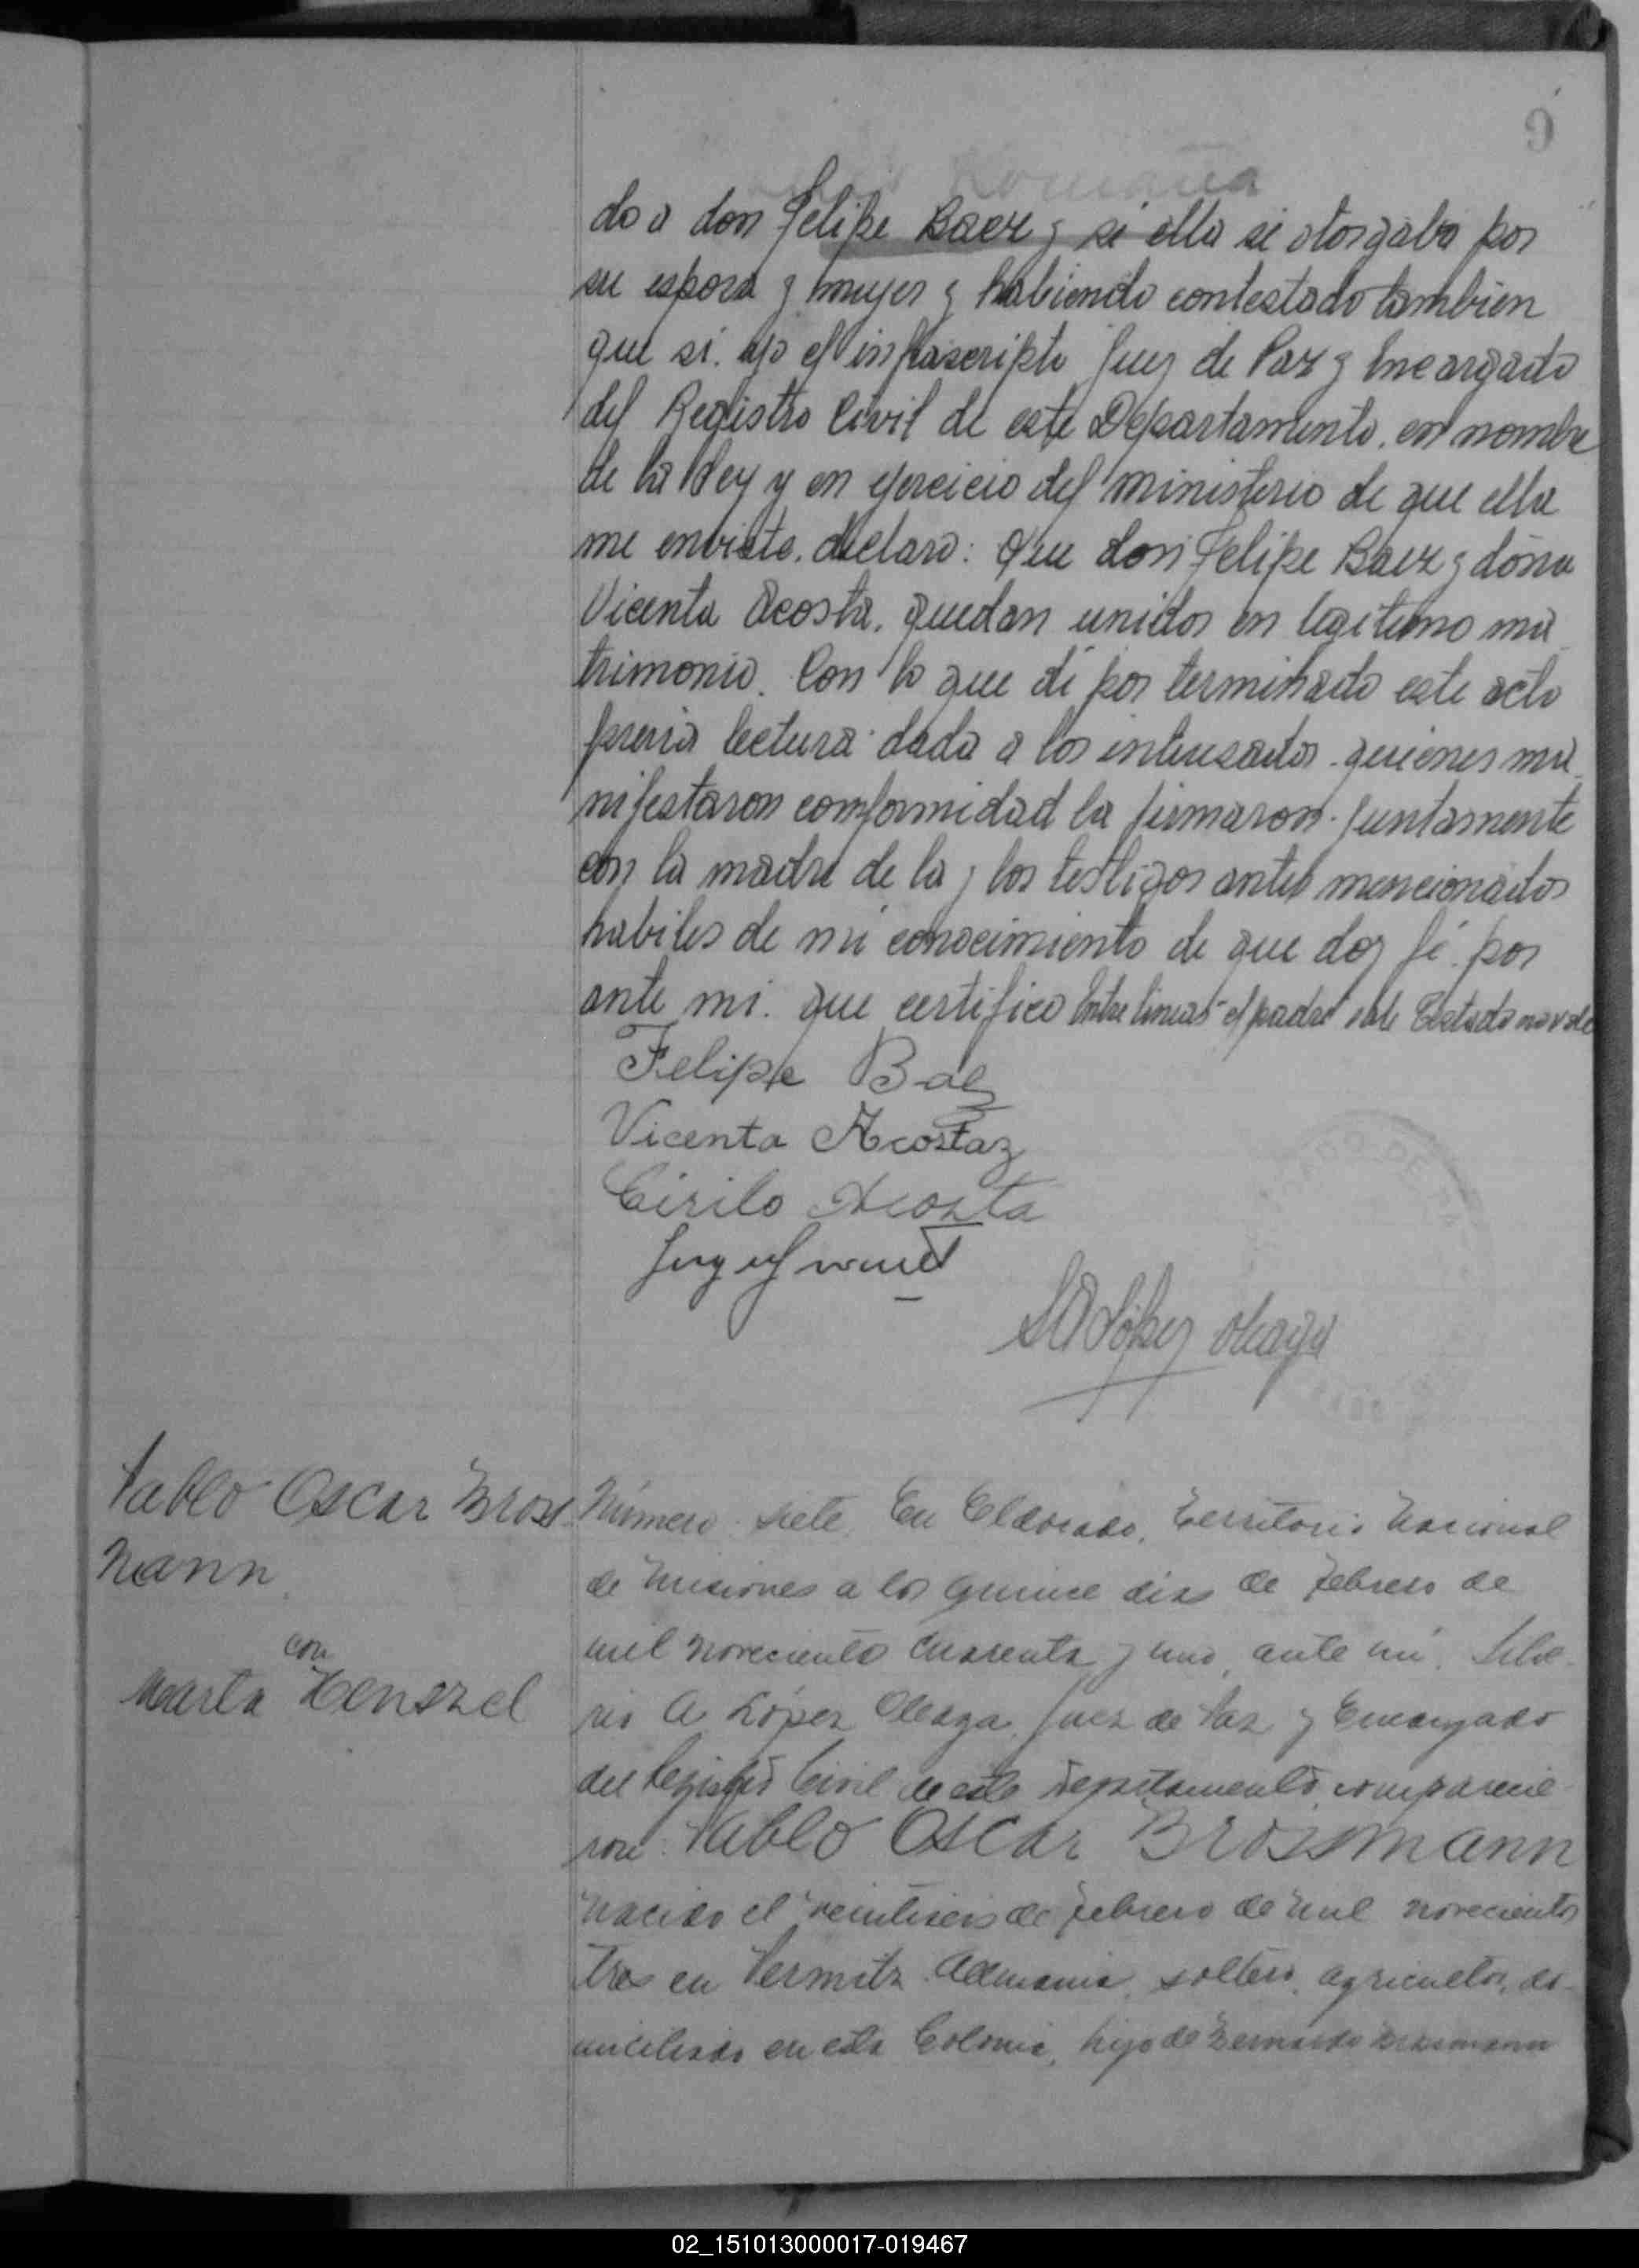 9
do a don Felipe Baez y si ella se otorgaba por
su esposa y mujer y habiendo contestado tambien
que si. yo el infrascripto Juez de Paz y Encargado
del Registro Civil de este Departamento, en nombre
de la Ley y en ejercicio del ministerio de que ella
me enviste. declaro: Que don Felipe Baez y doña
Vicenta Acosta. quedan unidos en legitimo ma
trimonio. Con lo que di por terminado este acto
previa lectura dada a los interesados. quienes ma
nifestaron conformidad la firmaron. juntamente
con la madre de la y los testigos antes mencionados
habiles de mi conocimiento de que doy fé. por
ante mi. que certifico Entre lineas - el padre vale Testado no vale
Felipe Baez
Vicenta Acosta
Cirilo Acosta
López Oleaga
Pablo Oscar Bross
mann
con
Marta Henszel
Número siete. En Eldorado, Territorio Nacional
de Misiones a los quince dias de Febrero de
mil noveciento cuarenta y uno, ante mi,
rio A. López Oleaga, Juez de Paz y Encargado
del Registro Civil de este Departamento, comparecie
ron: Pablo Oscar Brossmann
nacido el veintiseis de Febrero de mil novecientos
tres en Alemania, soltero, agricultor, do-
miciliado en esta Colonia, hijo de Bernardo Brossmann
02_151013000017-019467